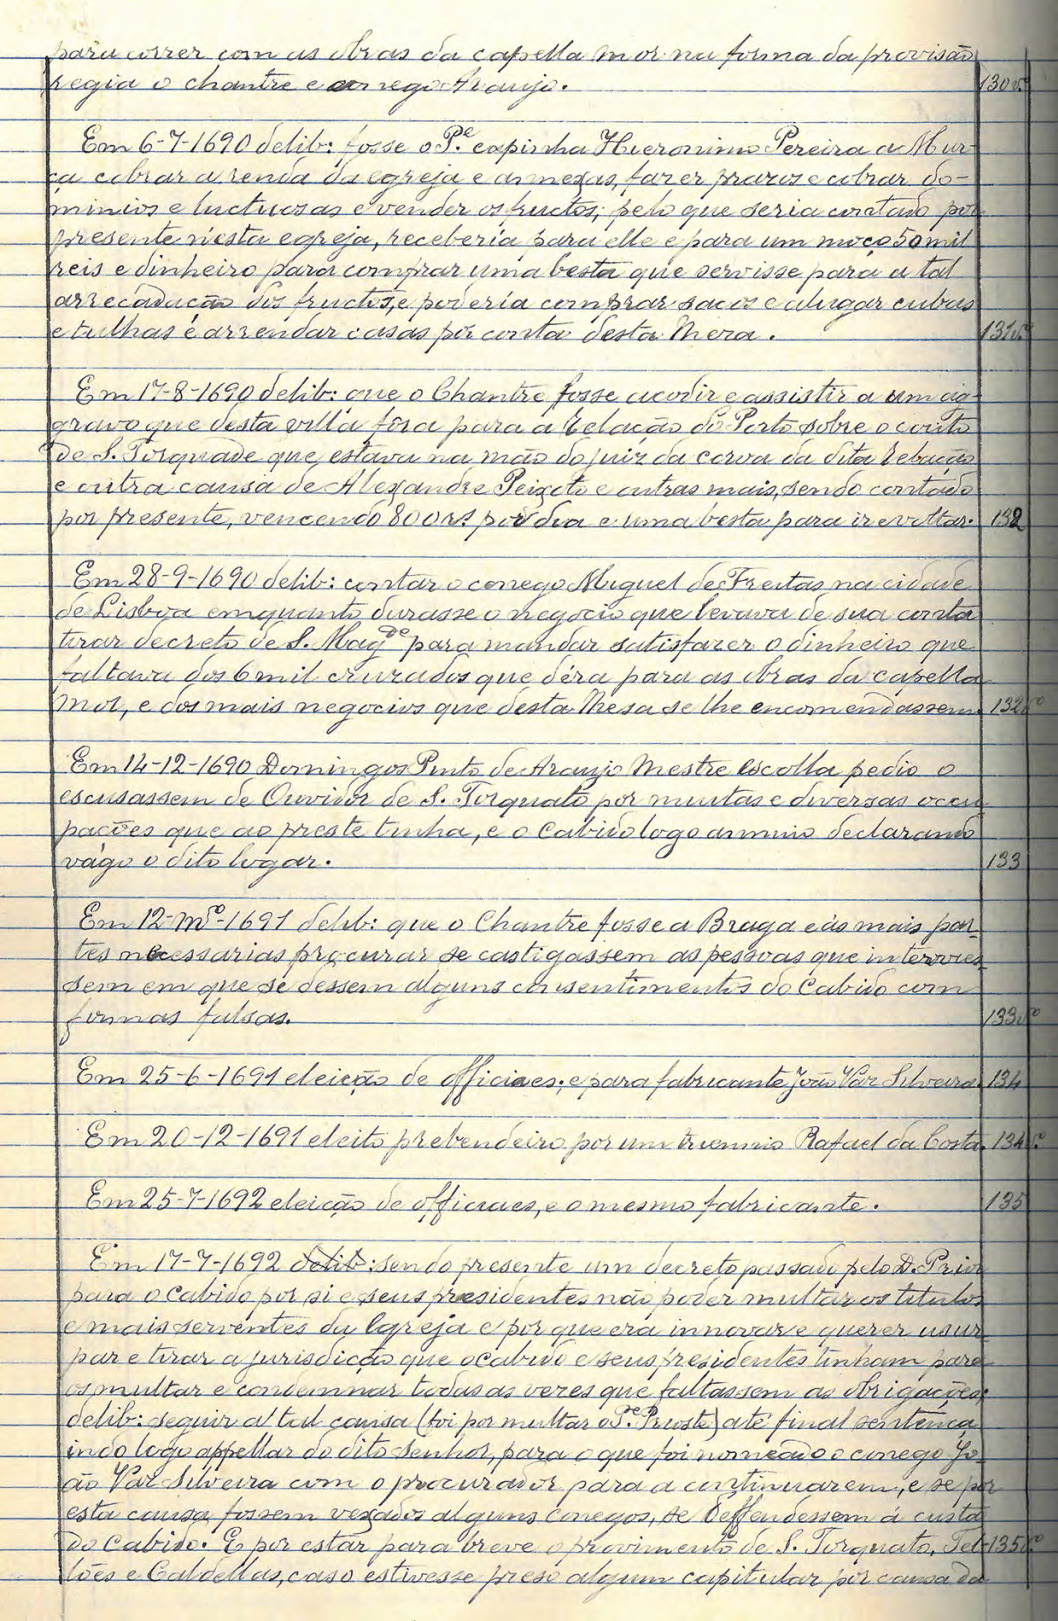 para correr com as obras da capella mor na forma da provisão
regia o chantre e conego Araujo. 130 v.º
Em 6-7-1690 delib: fosse o P.e capinha Hieronimo Pereira a Mur-
ça cobrar a renda da egreja e annexas, fazer prazos e cobrar do-
minios e luctuosas e vender os fructos; pelo que seria contado por
presente n'esta egreja, receberia para elle e para um moço 50 mil
reis e dinheiro para comprar uma besta que servisse para a tal
arrecadação dos fructos, e poderia comprar sacos e alugar cubas
e tulhas e arrendar casas por conta desta Meza. 131 v.º
Em 17-8-1690 delib: que o Chantre fosse acodir e assistir a um ag-
gravo que desta villa fôra para a Relação do Porto sobre o couto
de S. Torquade que estava na mão do juiz da coroa da dita Relação
e outra causa de Alexandre Peixoto e outras mais, sendo contado
por presente, vencendo 800 rs por dia e uma besta para ir e voltar. 132
Em 28-9-1690 delib: contar o conego Miguel de Freitas na cidade
de Lisboa emquanto durasse o negocio que levava de sua conta
tirar decreto de S. Mag.de para mandar satisfazer o dinheiro que
faltava dos 6 mil cruzados que déra para as obras da capella
mor, e dos mais negocios que desta Mesa se lhe encomendassem 132 v.º
Em 14-12-1690 Domingos Pinto de Araujo Mestre Escolla pedio o
escusassem de Ouvidor de S. Torquato por muitas e diversas occu
pações que ao preste tinha, e o Cabido logo annuio declarando
vágo o dito logar. 133
Em 12-M.ço-1691 delib: que o Chantre fosse a Braga e ás mais par-
tes necessarias procurar se castigassem as pessoas que intervies
sem em que se dessem alguns consentimentos do Cabido com
formas falsas. 133 v.º
Em 25-6-1691 eleição de officiaes; e para fabricante João Vaz Silveira 134
Em 20-12-1691 eleito prebendeiro por um triennio Rafael da Costa. 134 v.º
Em 25-7-1692 eleição de officiaes, e o mesmo fabricante. 135
Em 17-7-1692 delib: sendo presente um decreto passado pelo D. Prior
para o Cabido por si e seus presidentes não poder multar os titulos
e mais serventes da Egreja e por que era innovar e querer usur
par e tirar a jurisdicção que o cabido e seus presidentes tinham para
os multar e condemnar todas as vezes que faltassem as obrigações;
delib: seguir a tal causa (foi por multar o P.e Prioste) até final sentença
indo logo appellar do dito senhor, para o que foi nomeado o conego Jo-
ão Vaz Silveira com o procurador para a continuarem, e se por
esta causa fossem vexados alguns conegos, se deffendessem á custa
do Cabido. E por estar para breve o provimento de S. Torquato, Tel- 135 v.º
lões e Caldellas, caso estivesse preso algum capitular por causa da